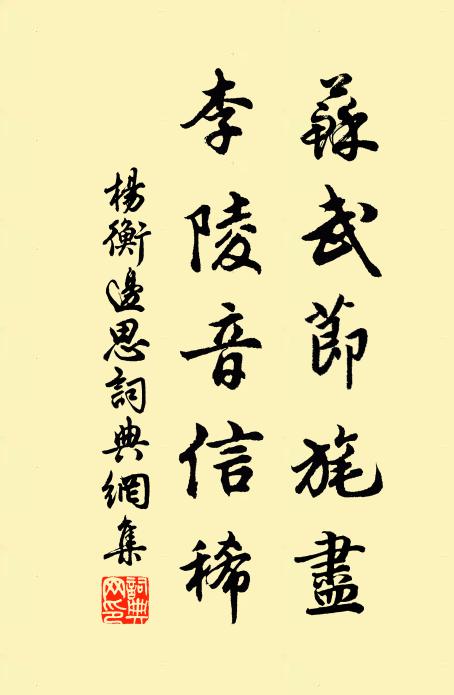 蘇武節旄盡
李陵音信稀
楊衡邊思詞典網集
詞典
网印